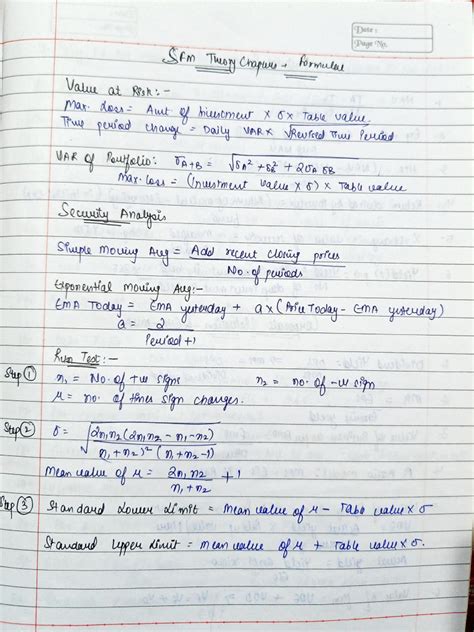 Date :
Page No.
SFM Theory Chapters + Formulae
Value at Risk :-
Max. Loss = Amt of Investment × σ × Table value
Time period change = Daily VAR × √Revised Time Period
VAR of Portfolio: σA+B = √σA² + σB² + 2σA σB
Max. Loss = (Investment Value × σ) × Table value
Security Analysis
Simple Moving Avg = Add recent closing prices / No. of periods
Exponential Moving Avg :-
EMA Today = EMA yesterday + a × (Price Today - EMA yesterday)
a = 2 / Period + 1
Run Test :-
Step ① n₁ = No. of +ve signs n₂ = no. of -ve sign
r = no. of times sign changes.
Step ② σ = √2n₁n₂(2n₁n₂ - n₁ - n₂) / (n₁ + n₂)² (n₁ + n₂ - 1)
Mean value of r = 2n₁n₂ / n₁ + n₂ + 1
Step ③ Standard Lower Limit = Mean value of r - Table value × σ
Standard Upper Limit = Mean value of r + Table value × σ.